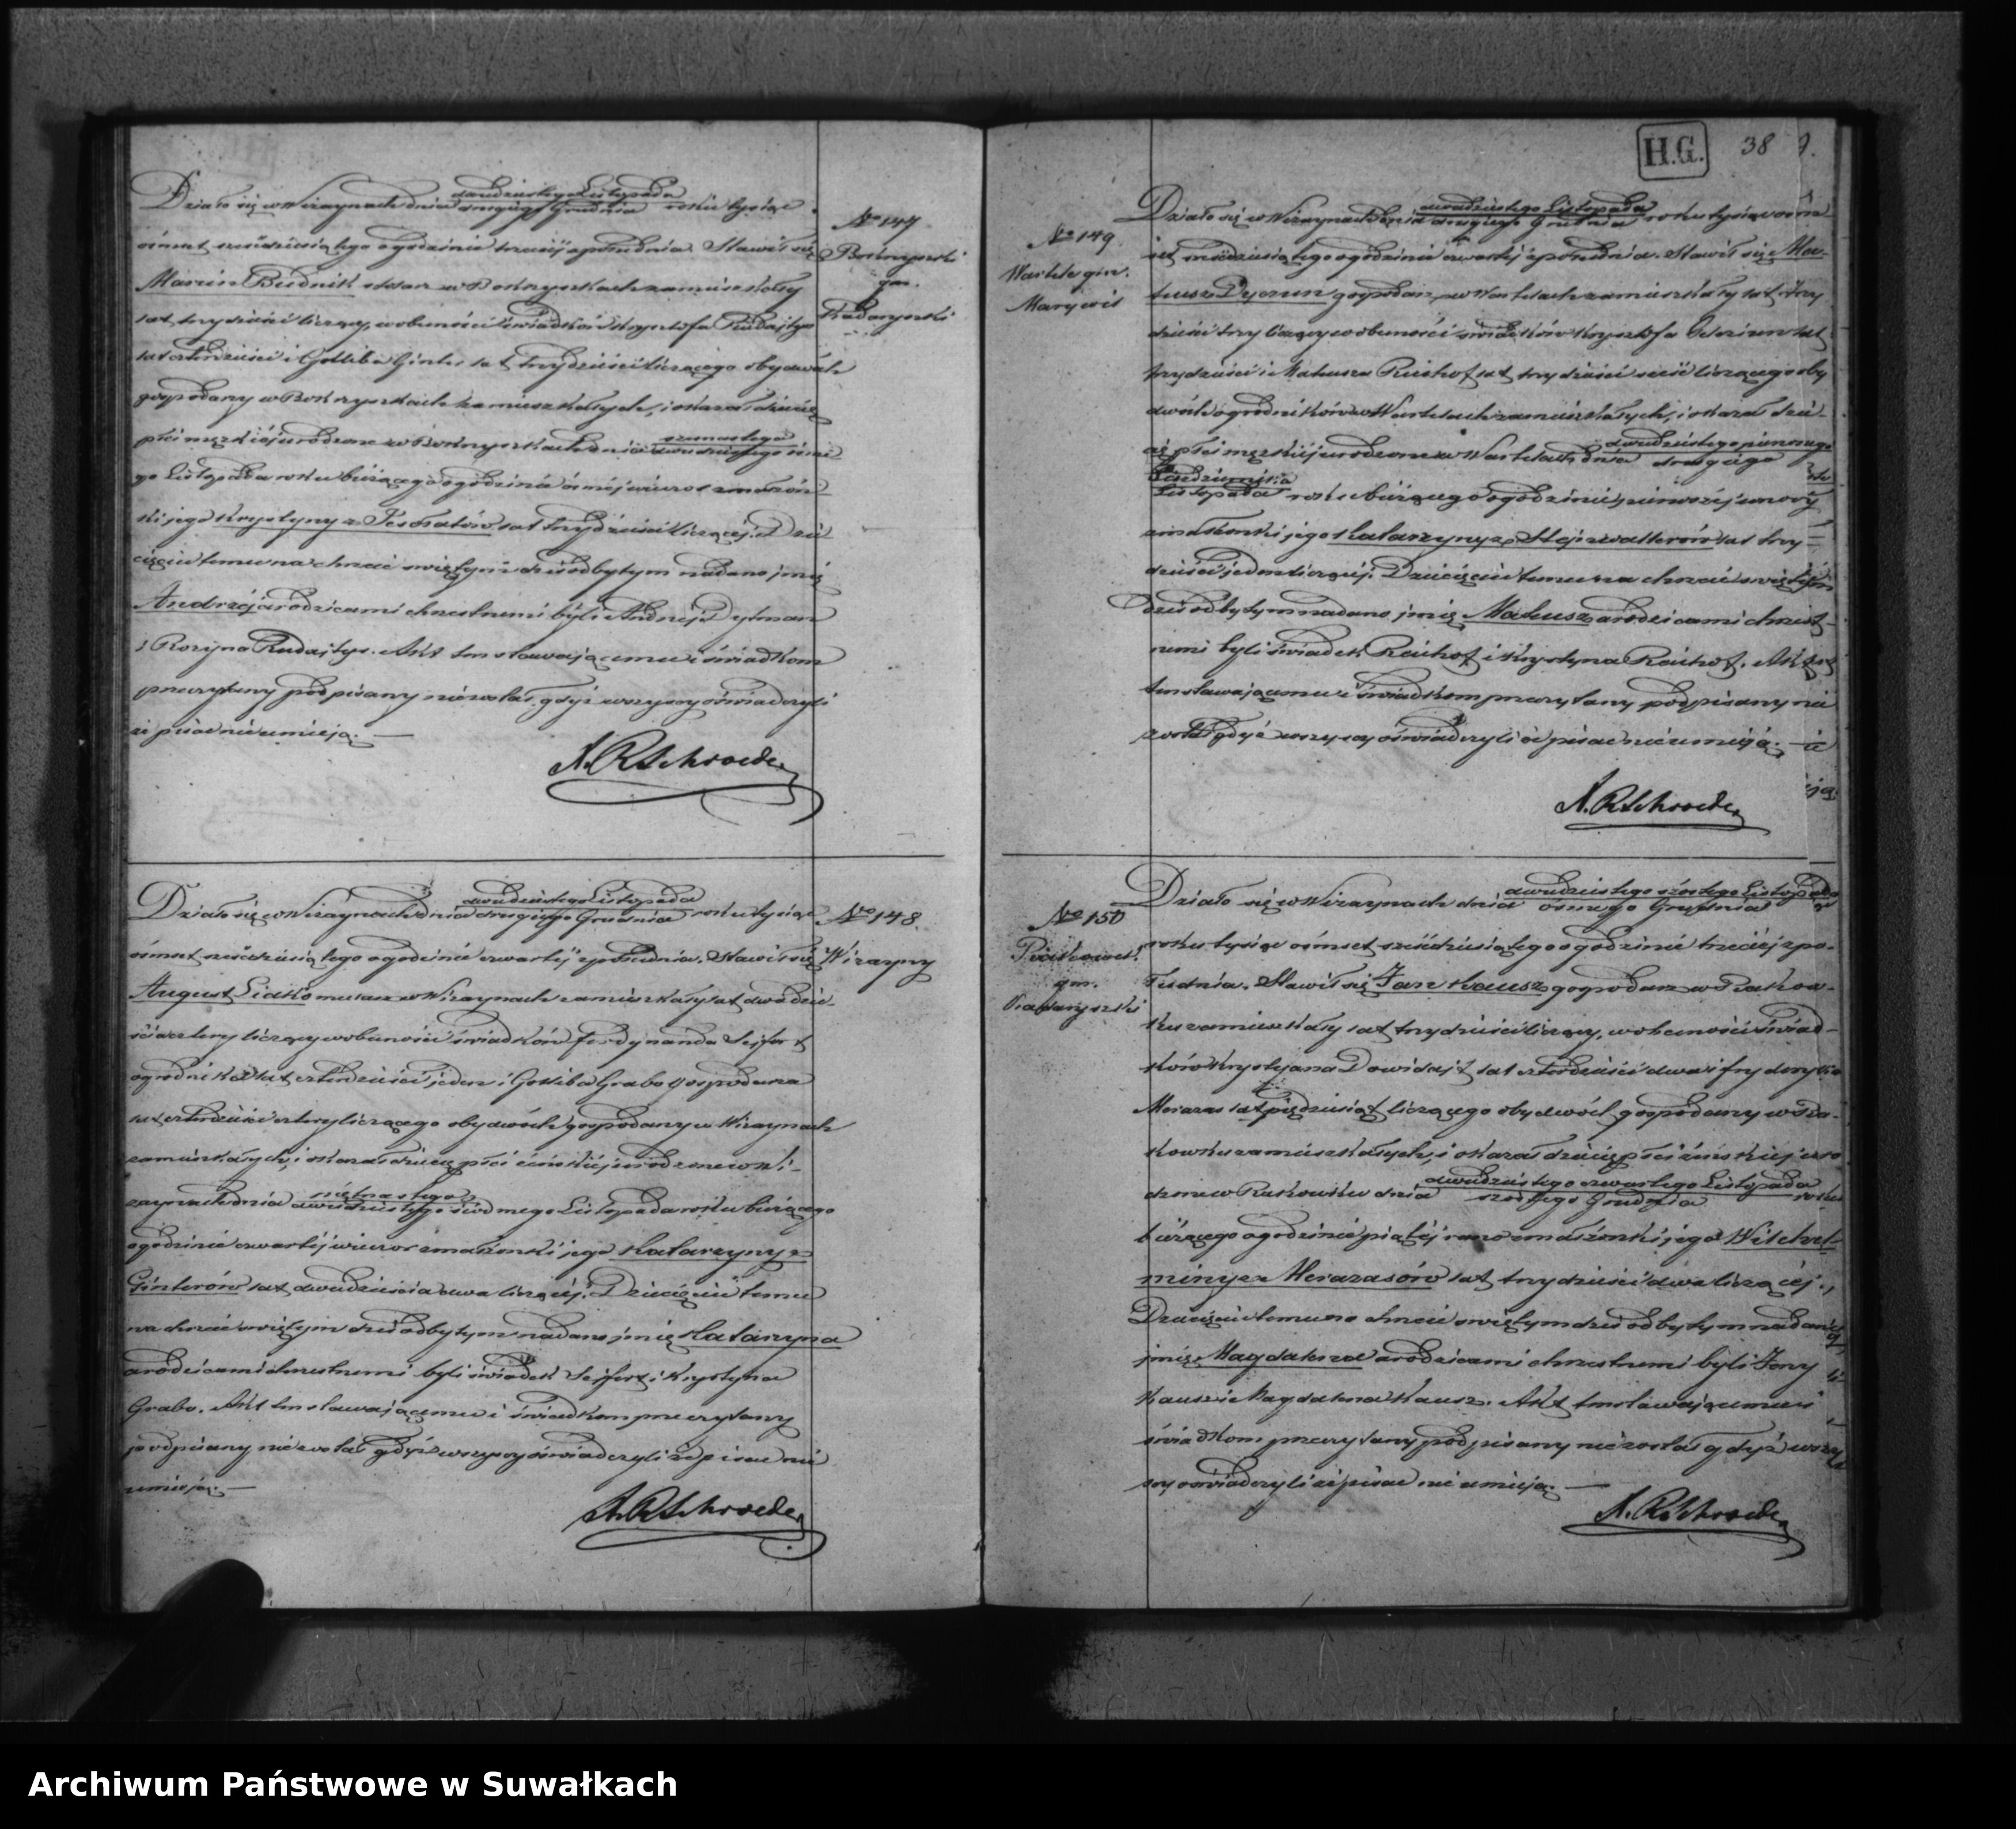 Działo się w Wiżaynach dnia dwudziestego Listopada / drugiego Grudnia roku tysiąc
ośmset sześćdziesiątego o godzinie trzeciej z południa. Stawił się
Marcin Budnik w Bokszyszkach zamieszkały
lat trzydzieści liczący, w obecności świadków Krysztofa Rudajtys
lat czterdzieści i Gottliba Ginter lat trzydzieści liczącego obydwóch
gospodarzy w Bokszyszkach zamieszkałych, i okazał dziecię
płci męzkiéj urodzone w Bokszyszkach dnia / dwudziestego ósme-
go Listopada roku bieżącego o godzinie ósmej wieczór z małżon-
ki jego Krystyny z lat trzydzieści liczącej. Dzie-
cięciu temu na chrzcie świętym dziś odbytym nadano jmię
Andrzéj a rodzicami chrzestnemi byli Andrzéj Dytman
i Rozyna Rudajtys. Akt ten stawającemu i świadkom
przeczytany podpisany nie został, gdyż wszyscy oświadczyli
że pisać nie umieją. —
A. R. Schroeder
No 147
gm.
Kadaryszki
Działo się w Wiżaynach dnia dwudziestego Listopada / drugiego Grudnia roku tysiąc
ośmset sześćdziesiątego o godzinie czwartéj z południa. Stawił się
August Lidko w Wiżaynach zamieszkały lat dwadzie-
ścia cztery liczący w obecności świadków Ferdynanda Sejfert
ogrodnika lat czterdzieści jeden i Gotliba Grabo gospodarza
lat czterdzieści cztery liczącego obydwóch gospodarzy w Wiżaynach
zamieszkałych, i okazał dziecię płci żeńskiéj urodzone w Wi-
żaynach dnia piętnastego / dwudziestego siódmego Listopada roku bieżącego
o godzinie czwartéj wieczór z małżonki jego Katarzyny z
Ginterów lat dwadzieścia dwa liczącéj. Dziecięciu temu
na chrzcie świętym dziś odbytym nadano jmię Katarzyna
a rodzicami chrzestnemi byli świadek Sejfert i Krystyna
Grabo. Akt ten stawającemu i świadkom przeczytany
podpisany nie został gdyż wszyscy oświadczyli że pisać nie
umieją. —
A. R. Schroeder
No 148.
Wiżayny
H.G. 38
No 149
Wartele gm.
Marywil
Działo się w Wiżaynach dnia dwudziestego Listopada / drugiego Grudnia roku tysiąc ośm-
set sześćdziesiątego o godzinie czwartéj z południa. Stawił się Ma-
teusz Dyczun gospodarz w Wartelach zamieszkały lat trzy-
dzieści trzy liczący w obecności świadków Krysztofa lat
trzydzieści i Mateusza Reichof lat trzydzieści sześć liczącego oby-
dwóch ogrodników w Wartelach zamieszkałych, i okazał dzie-
cię płci męzkiéj urodzone w Wartelach dnia dwudziestego pierwszego / drugiego
Października / Listopada roku bieżącego o godzinie pierwszéj w nocy
z małżonki jego Katarzyny z lat trzy-
dzieści jeden liczącéj. Dziecięciu temu na chrzcie świętym
dziś odbytym nadano jmię Mateusz a rodzicami chrzest-
nemi byli świadek Reichof i Krystyna Reichof. Akt
ten stawającemu i świadkom przeczytany podpisany nie
został gdyż wszyscy oświadczyli że pisać nie umieją. —
A. R. Schroeder
No 150
gm.
Kadaryszki
Działo się w Wiżaynach dnia dwudziestego szóstego Listopada / ósmego Grudnia
roku tysiąc ośmset sześćdziesiątego o godzinie trzeciéj z po-
łudnia. Stawił się Jan Kausz gospodarz w Rakow-
ku zamieszkały lat trzydzieści liczący, w obecności świad-
ków Krystyana Dowidajt lat czterdzieści dwa i Frydrycha
Merazas lat pięćdziesiąt liczącego obydwóch gospodarzy w Ra-
kowku zamieszkałych, i okazał dziecię płci żeńskiéj uro-
dzone w Rakowku dnia dwudziestego czwartego Listopada / szóstego Grudnia roku
bieżącego o godzinie piątéj rano z małżonki jego Wilchel-
miny z Merazasów lat trzydzieści dwa liczącéj.
Dziecięciu temu na chrzcie świętym dziś odbytym nadano
jmię Magdalena a rodzicami chrzestnemi byli Jerzy
Kausz i Magdalena Kausz. Akt ten stawającemu i
świadkom przeczytany podpisany nie został gdyż wszy-
scy oświadczyli że pisać nie umieją. —
A. R. Schroeder
Archiwum Państwowe w Suwałkach